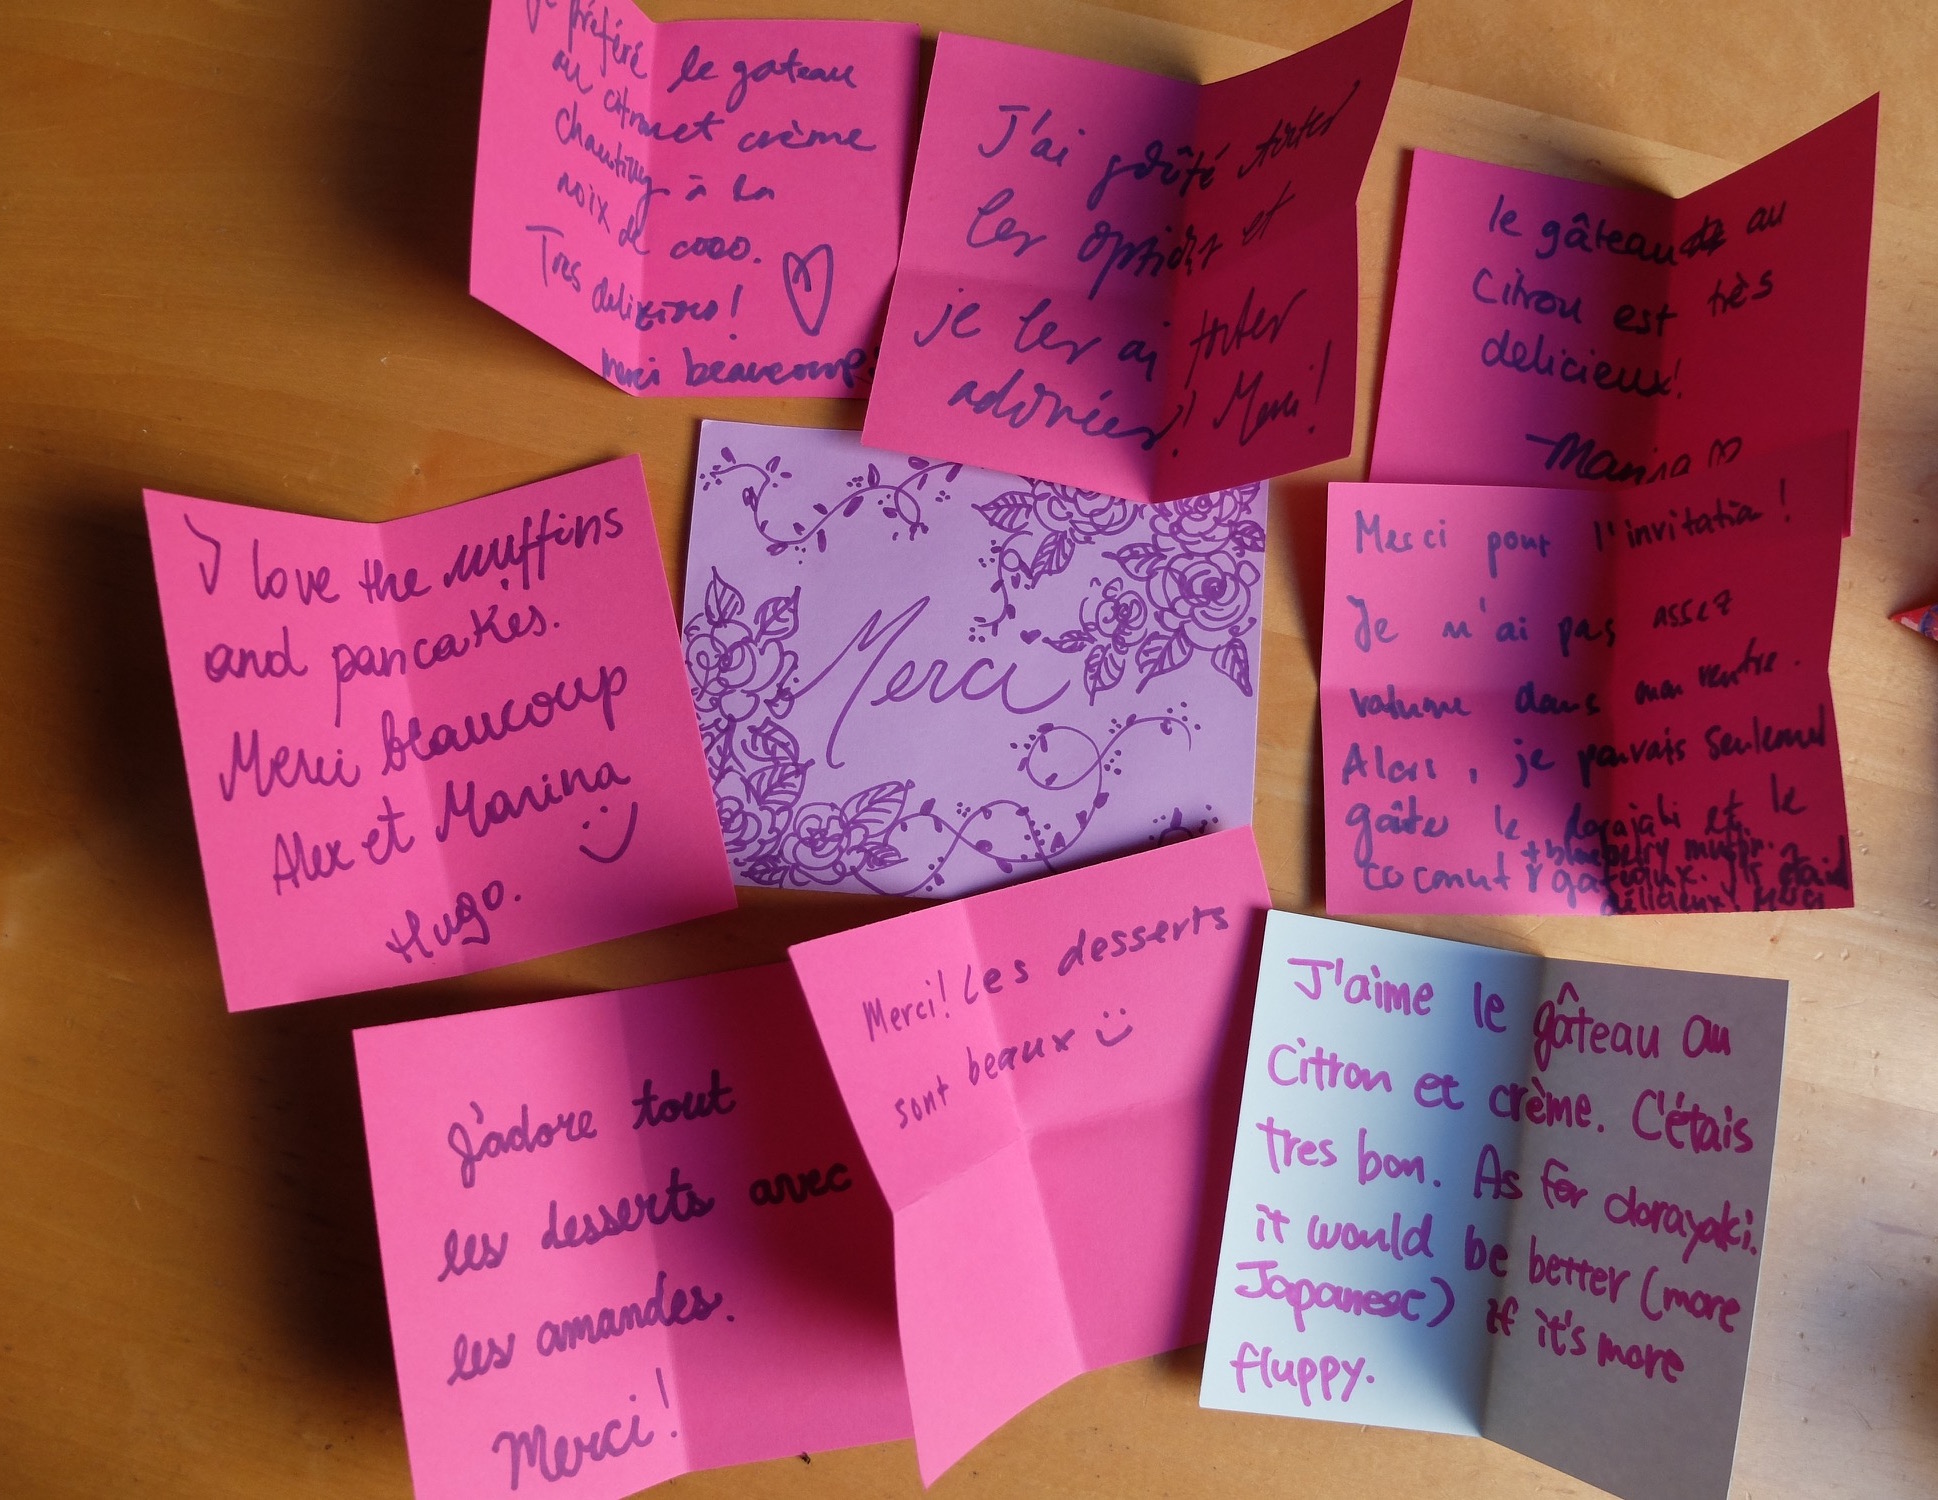 Je préfère le gateau
au citron et crème
chantilly à la
noix de coco.
Tres delicious!
merci beaucoup!
J'ai goûté toutes
les options et
je les ai toutes
adorées! Merci!
le gâteau au
Citron est très
delicieux!
-Marina
I love the muffins
and pancakes.
Merci beaucoup
Alex et Marina
Hugo.
Merci
Merci pour l'invitation!
Je n'ai pas assez
volume dans mon ventre.
Alors, je pouvais seulement
goûter le dorajaki et le
+ blueberry muffin
coconut gateaux. Ils étaid
délicieux! Merci
J'adore tout
les desserts avec
les amandes.
Merci!
Merci! Les desserts
sont beaux
J'aime le gâteau au
Citron et crème. C'étais
tres bon. As for dorayaki.
it would be better (more
Japanese) if it's more
fluppy.